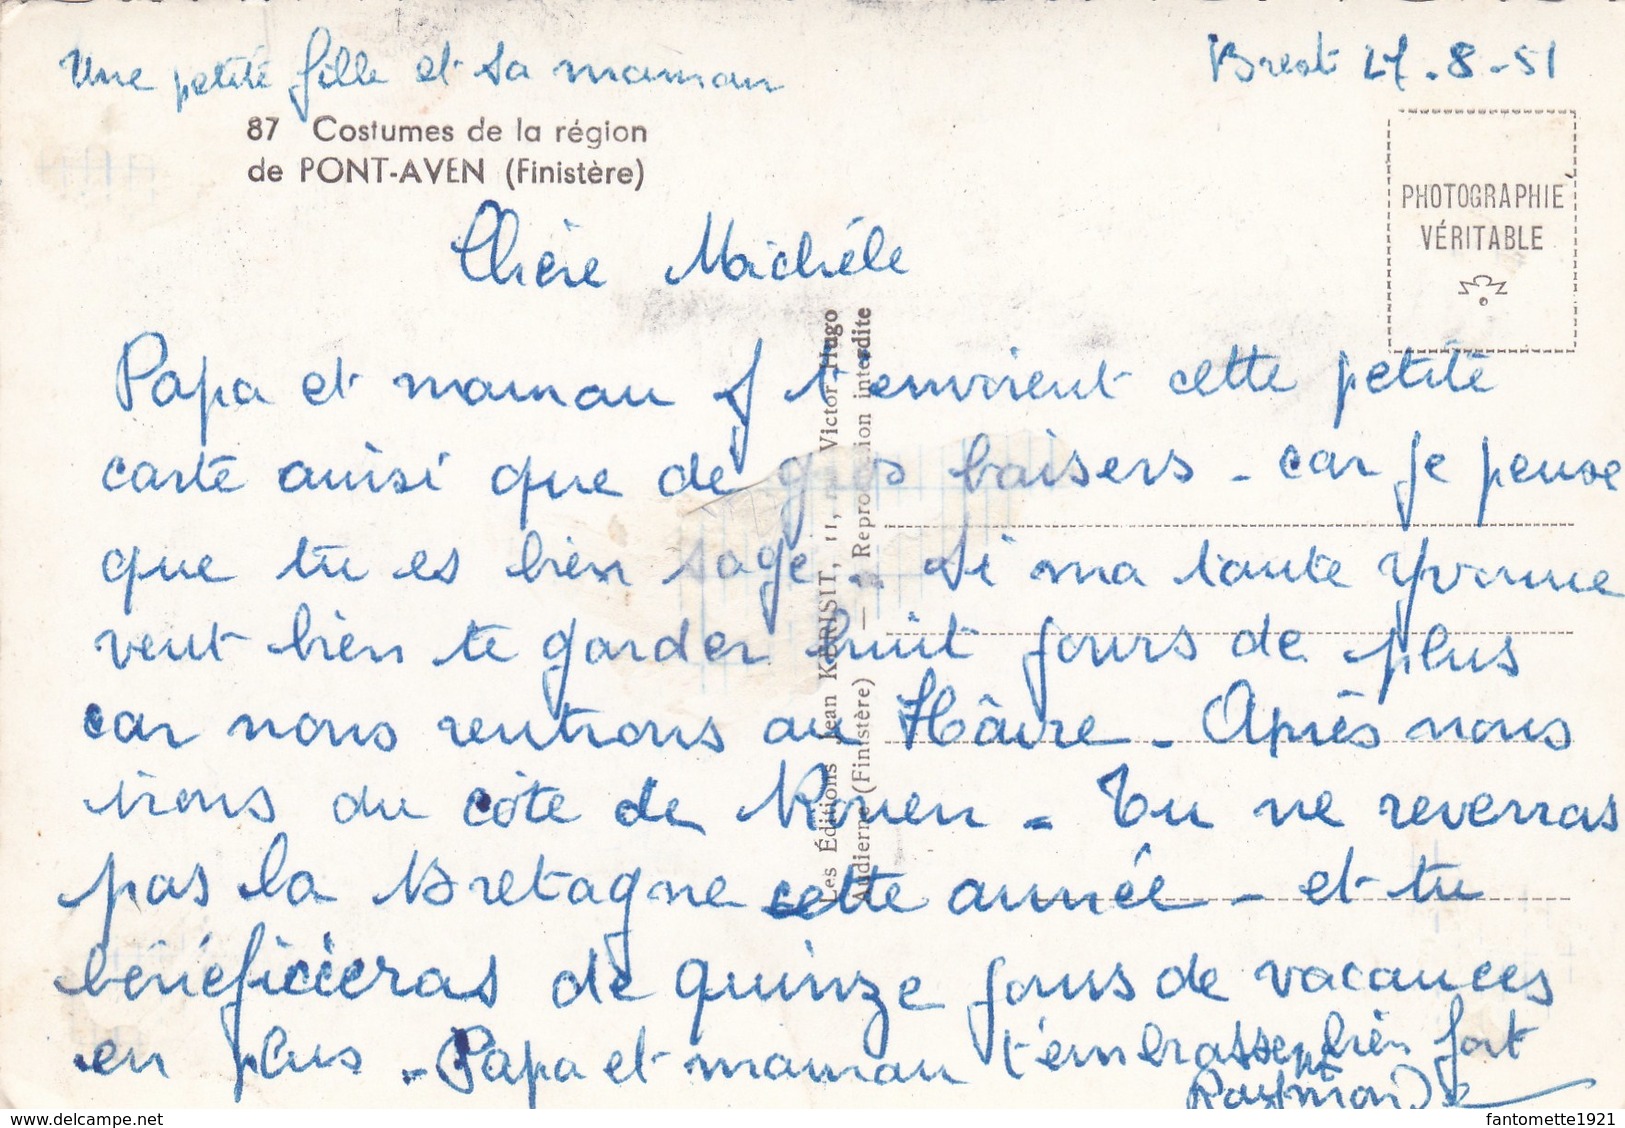 Une petite fille et sa maman
Brest 27-8-51
87 Costumes de la région
de PONT-AVEN (Finistère)
PHOTOGRAPHIE
VÉRITABLE
Chère Michèle
Papa et maman t'envoient cette petite
carte ainsi que de gros baisers - car je pense
que tu es bien sage - Si ma tante Yvonne
veut bien te garder huit jours de plus
car nous rentrons au Hâvre - Après nous
irons du côte de Rouen - Tu ne reverras
pas la Bretagne cette année - et tu
bénéficieras de quinze jours de vacances
en plus - Papa et maman t'embrassent bien fort
Raymonde
Les Éditions Jean KERISIT, 11, Victor Hugo
Audierne (Finistère) — Reproduction interdite
fantomette1921